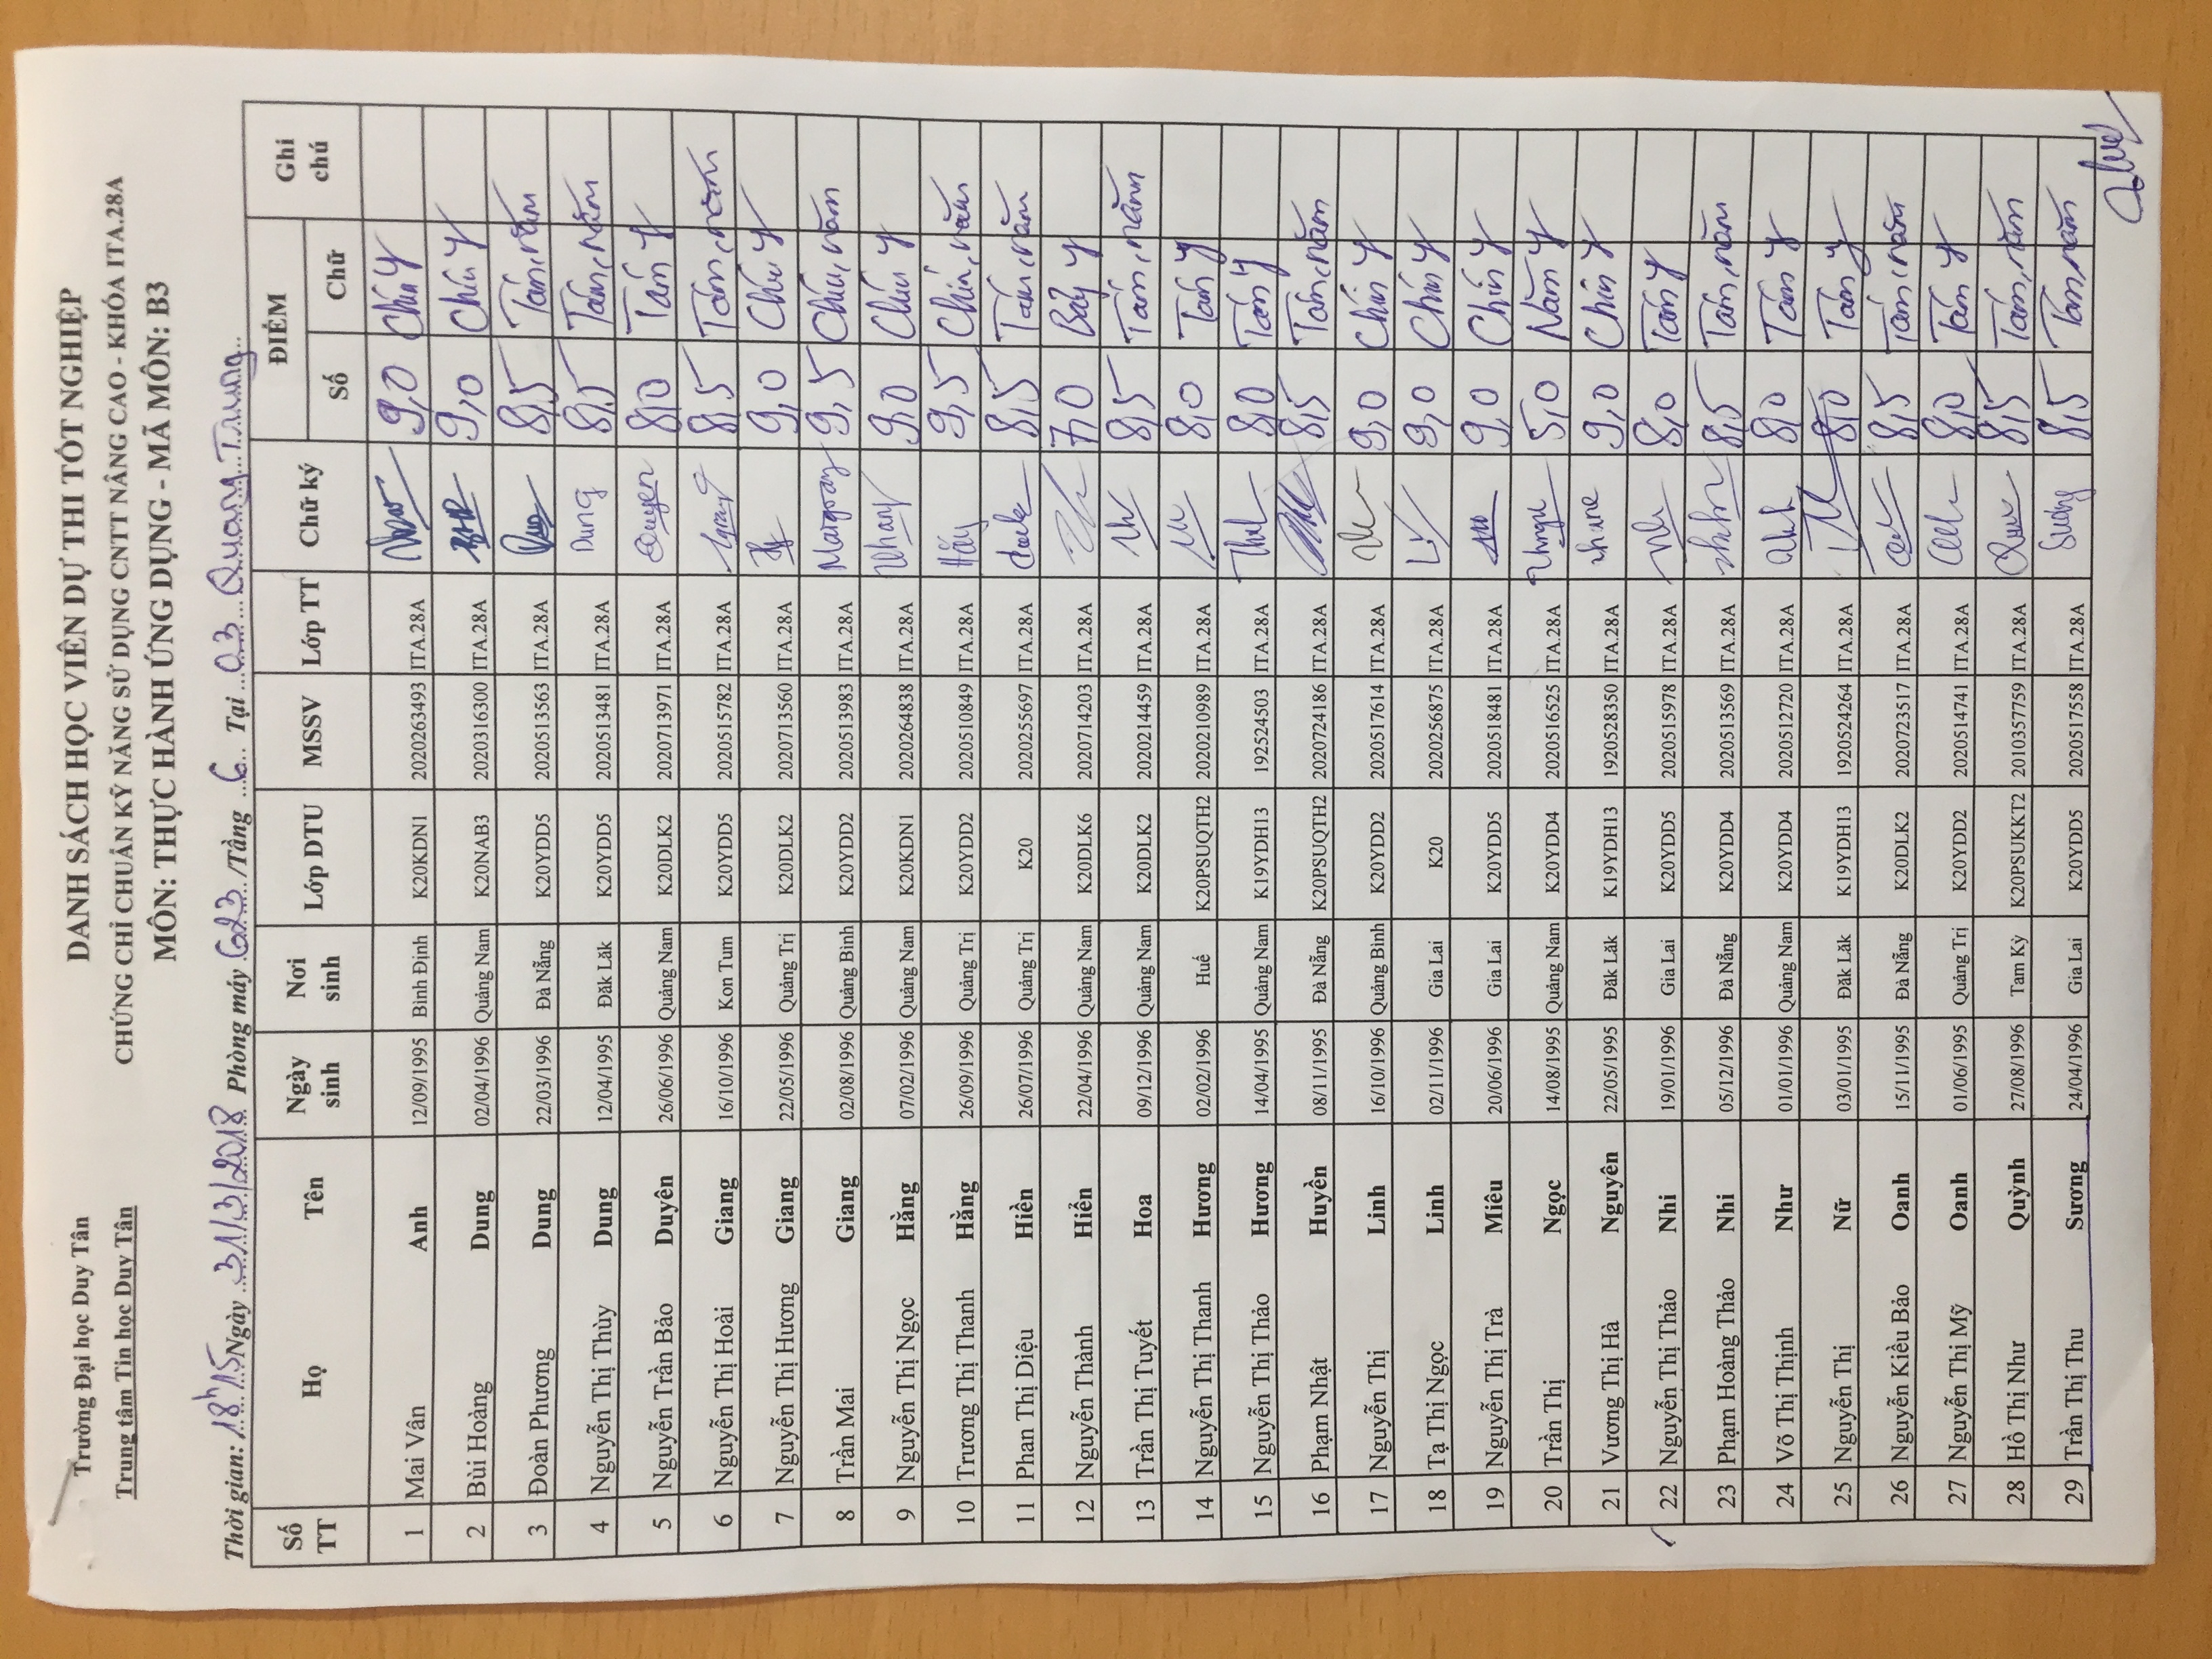 Trường Đại học Duy Tân
Trung tâm Tin học Duy Tân
DANH SÁCH HỌC VIÊN DỰ THI TỐT NGHIỆP
CHỨNG CHỈ CHUẨN KỸ NĂNG SỬ DỤNG CNTT NÂNG CAO - KHÓA ITA.28A
MÔN: THỰC HÀNH ỨNG DỤNG - MÃ MÔN: B3
Thời gian: 18h15 Ngày 31/3/2018 Phòng máy 623 /Tầng 6 Tại 03 Quang Trung
Số TT Họ Tên Ngày sinh Nơi sinh Lớp DTU MSSV Lớp TT Chữ ký ĐIỂM Số Chữ Ghi chú
1 Mai Vân Anh 12/09/1995 Bình Định K20KDN1 2020263493 ITA.28A 9,0 Chín y
2 Bùi Hoàng Dung 02/04/1996 Quảng Nam K20NAB3 2020316300 ITA.28A 9,0 Chín y
3 Đoàn Phương Dung 22/03/1996 Đà Nẵng K20YDD5 2020513563 ITA.28A 8,5 Tám, năm
4 Nguyễn Thị Thùy Dung 12/04/1995 Đăk Lăk K20YDD5 2020513481 ITA.28A Dung 8,5 Tám, năm
5 Nguyễn Trần Bảo Duyên 26/06/1996 Quảng Nam K20DLK2 2020713971 ITA.28A Duyen 8,0 Tám y
6 Nguyễn Thị Hoài Giang 16/10/1996 Kon Tum K20YDD5 2020515782 ITA.28A 8,5 Tám, năm
7 Nguyễn Thị Hương Giang 22/05/1996 Quảng Trị K20DLK2 2020713560 ITA.28A 9,0 Chín y
8 Trần Mai Giang 02/08/1996 Quảng Bình K20YDD2 2020513983 ITA.28A 9,5 Chín, năm
9 Nguyễn Thị Ngọc Hằng 07/02/1996 Quảng Nam K20KDN1 2020264838 ITA.28A 9,0 Chín y
10 Trương Thị Thanh Hằng 26/09/1996 Quảng Trị K20YDD2 2020510849 ITA.28A 9,5 Chín, năm
11 Phan Thị Diệu Hiền 26/07/1996 Quảng Trị K20 2020255697 ITA.28A 8,5 Tám, năm
12 Nguyễn Thành Hiến 22/04/1996 Quảng Nam K20DLK6 2020714203 ITA.28A 7,0 Bảy y
13 Trần Thị Tuyết Hoa 09/12/1996 Quảng Nam K20DLK2 2020214459 ITA.28A 8,5 Tám, năm
14 Nguyễn Thị Thanh Hương 02/02/1996 Huế K20PSUQTH2 2020210989 ITA.28A 8,0 Tám y
15 Nguyễn Thị Thảo Hương 14/04/1995 Quảng Nam K19YDH13 192524503 ITA.28A 8,0 Tám y
16 Phạm Nhật Huyền 08/11/1995 Đà Nẵng K20PSUQTH2 2020724186 ITA.28A 8,5 Tám, năm
17 Nguyễn Thị Linh 16/10/1996 Quảng Bình K20YDD2 2020517614 ITA.28A 9,0 Chín y
18 Tạ Thị Ngọc Linh 02/11/1996 Gia Lai K20 2020256875 ITA.28A 9,0 Chín y
19 Nguyễn Thị Trà Miêu 20/06/1996 Gia Lai K20YDD5 2020518481 ITA.28A 9,0 Chín y
20 Trần Thị Ngọc 14/08/1995 Quảng Nam K20YDD4 2020516525 ITA.28A 5,0 Năm y
21 Vương Thị Hà Nguyên 22/05/1995 Đăk Lăk K19YDH13 1920528350 ITA.28A 9,0 Chín y
22 Nguyễn Thị Thảo Nhi 19/01/1996 Gia Lai K20YDD5 2020515978 ITA.28A 8,0 Tám y
23 Phạm Hoàng Thảo Nhi 05/12/1996 Đà Nẵng K20YDD4 2020513569 ITA.28A 8,5 Tám, năm
24 Võ Thị Thịnh Như 01/01/1996 Quảng Nam K20YDD4 2020512720 ITA.28A 8,0 Tám y
25 Nguyễn Thị Nữ 03/01/1995 Đăk Lăk K19YDH13 1920524264 ITA.28A 8,0 Tám y
26 Nguyễn Kiều Bảo Oanh 15/11/1995 Đà Nẵng K20DLK2 2020723517 ITA.28A 8,5 Tám, năm
27 Nguyễn Thị Mỹ Oanh 01/06/1995 Quảng Trị K20YDD2 2020514741 ITA.28A 8,0 Tám y
28 Hồ Thị Như Quỳnh 27/08/1996 Tam Kỳ K20PSUKKT2 2010357759 ITA.28A 8,5 Tám, năm
29 Trần Thị Thu Sương 24/04/1996 Gia Lai K20YDD5 2020517558 ITA.28A Sương 8,5 Tám, năm